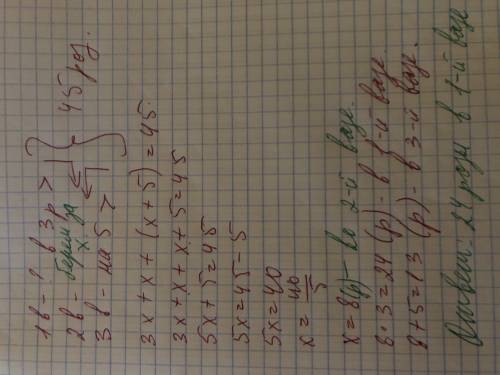 1в - ? в 3 р >
2в - берем за х } 45 роз.
3в - на 5 >
3х + х + (х + 5) = 45
3х + х + х + 5 = 45
5х + 5 = 45
5х = 45 - 5
5х = 40
х = 40/5
х = 8 (р) - во 2-й вазе.
8 · 3 = 24 (р) - в 1-й вазе
8 + 5 = 13 (р) - в 3-й вазе.
Ответ: 24 розы в 1-й вазе